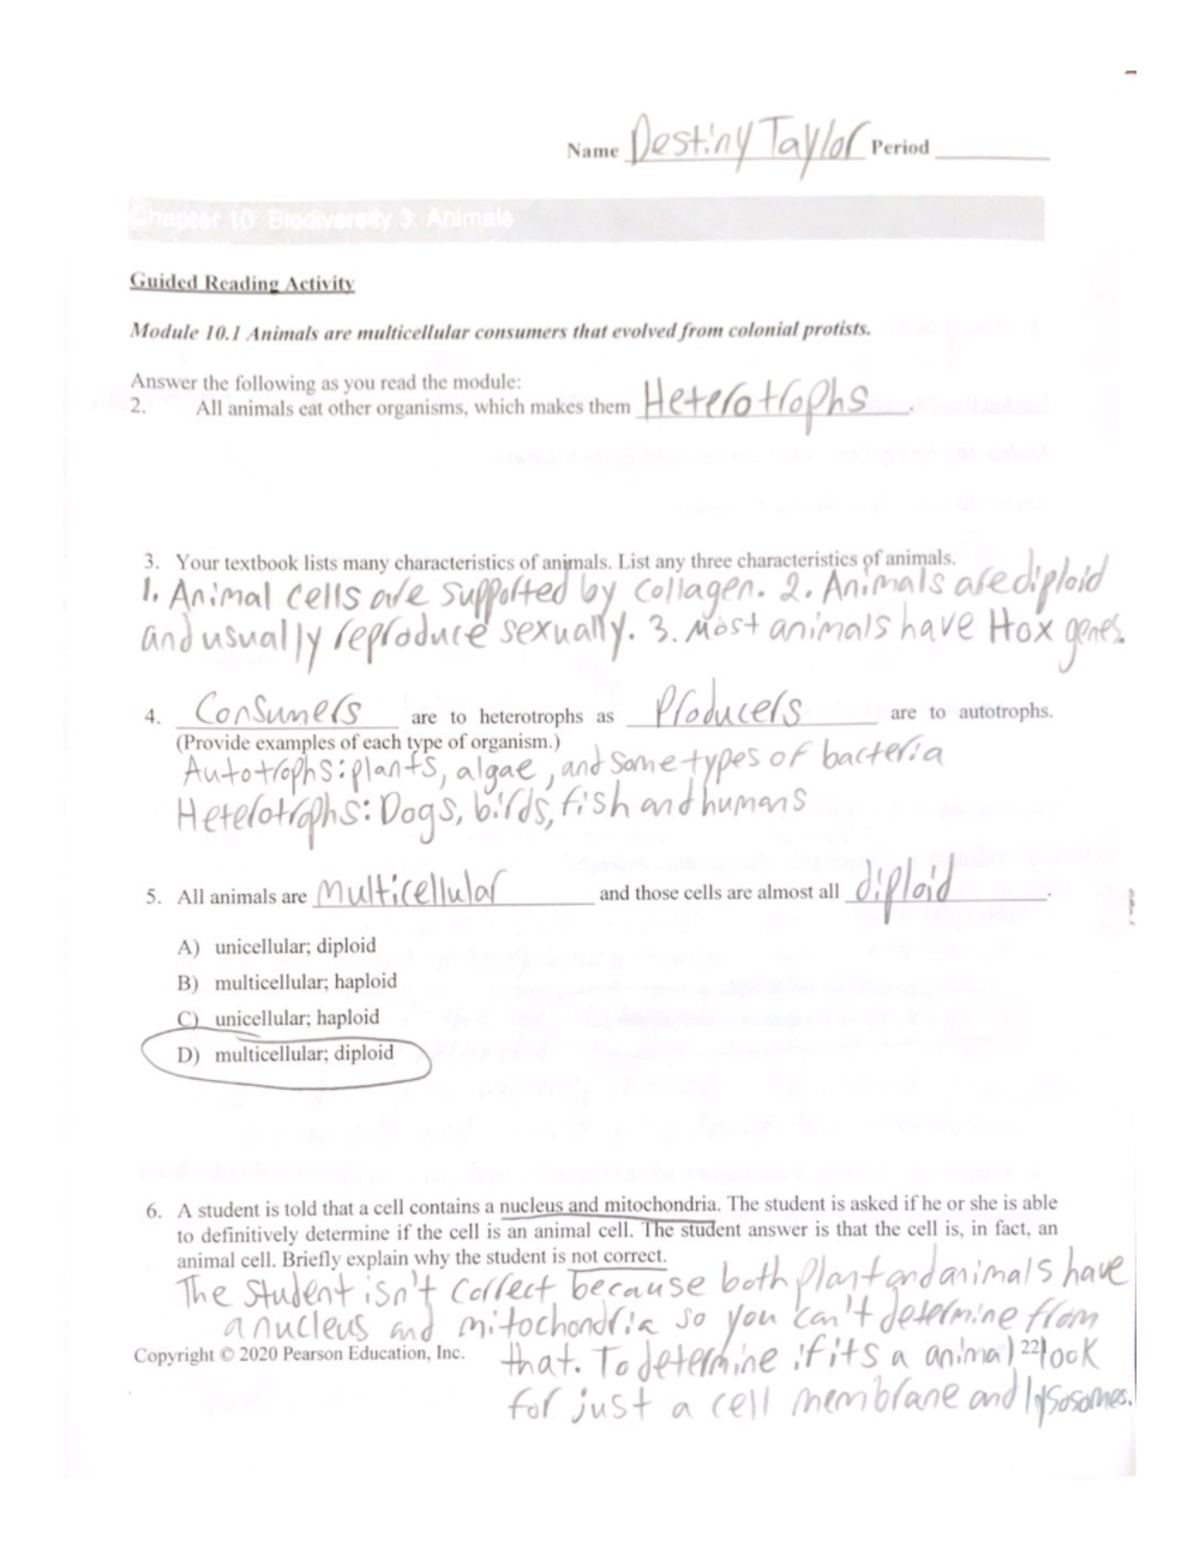 Name Destiny Taylor Period
Chapter 10: Biodiversity 3: Animals
Guided Reading Activity
Module 10.1 Animals are multicellular consumers that evolved from colonial protists.
Answer the following as you read the module:
2. All animals eat other organisms, which makes them Heterotrophs.
3. Your textbook lists many characteristics of animals. List any three characteristics of animals.
1. Animal cells are supported by collagen. 2. Animals are diploid
and usually reproduce sexually. 3. Most animals have Hox genes.
4. Consumers are to heterotrophs as Producers are to autotrophs.
(Provide examples of each type of organism.)
Autotrophs: plants, algae, and some types of bacteria
Heterotrophs: Dogs, birds, fish and humans
5. All animals are multicellular and those cells are almost all diploid.
A) unicellular; diploid
B) multicellular; haploid
C) unicellular; haploid
D) multicellular; diploid
6. A student is told that a cell contains a nucleus and mitochondria. The student is asked if he or she is able
to definitively determine if the cell is an animal cell. The student answer is that the cell is, in fact, an
animal cell. Briefly explain why the student is not correct.
The student isn't correct because both plant and animals have
a nucleus and mitochondria so you can't determine from
Copyright © 2020 Pearson Education, Inc.
that. To determine if its a animal look
221
for just a cell membrane and lysosomes.